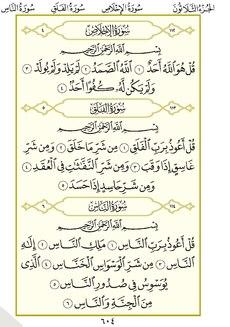 الجزء الثلاثون سورة الإخلاص سورة الفلق سورة الناس
١١٢ سورة الإخلاص ٤
بِسْمِ اللَّهِ الرَّحْمَٰنِ الرَّحِيمِ
قُلْ هُوَ اللَّهُ أَحَدٌ ١ اللَّهُ الصَّمَدُ ٢ لَمْ يَلِدْ وَلَمْ يُولَدْ ٣
وَلَمْ يَكُن لَّهُ كُفُوًا أَحَدٌ ٤
١١٣ سورة الفلق ٥
بِسْمِ اللَّهِ الرَّحْمَٰنِ الرَّحِيمِ
قُلْ أَعُوذُ بِرَبِّ الْفَلَقِ ١ مِن شَرِّ مَا خَلَقَ ٢ وَمِن شَرِّ
غَاسِقٍ إِذَا وَقَبَ ٣ وَمِن شَرِّ النَّفَّٰثَٰتِ فِي الْعُقَدِ ٤
وَمِن شَرِّ حَاسِدٍ إِذَا حَسَدَ ٥
١١٤ سورة الناس ٦
بِسْمِ اللَّهِ الرَّحْمَٰنِ الرَّحِيمِ
قُلْ أَعُوذُ بِرَبِّ النَّاسِ ١ مَلِكِ النَّاسِ ٢ إِلَٰهِ
النَّاسِ ٣ مِن شَرِّ الْوَسْوَاسِ الْخَنَّاسِ ٤ الَّذِي
يُوَسْوِسُ فِي صُدُورِ النَّاسِ ٥
مِنَ الْجِنَّةِ وَالنَّاسِ ٦
٦٠٤